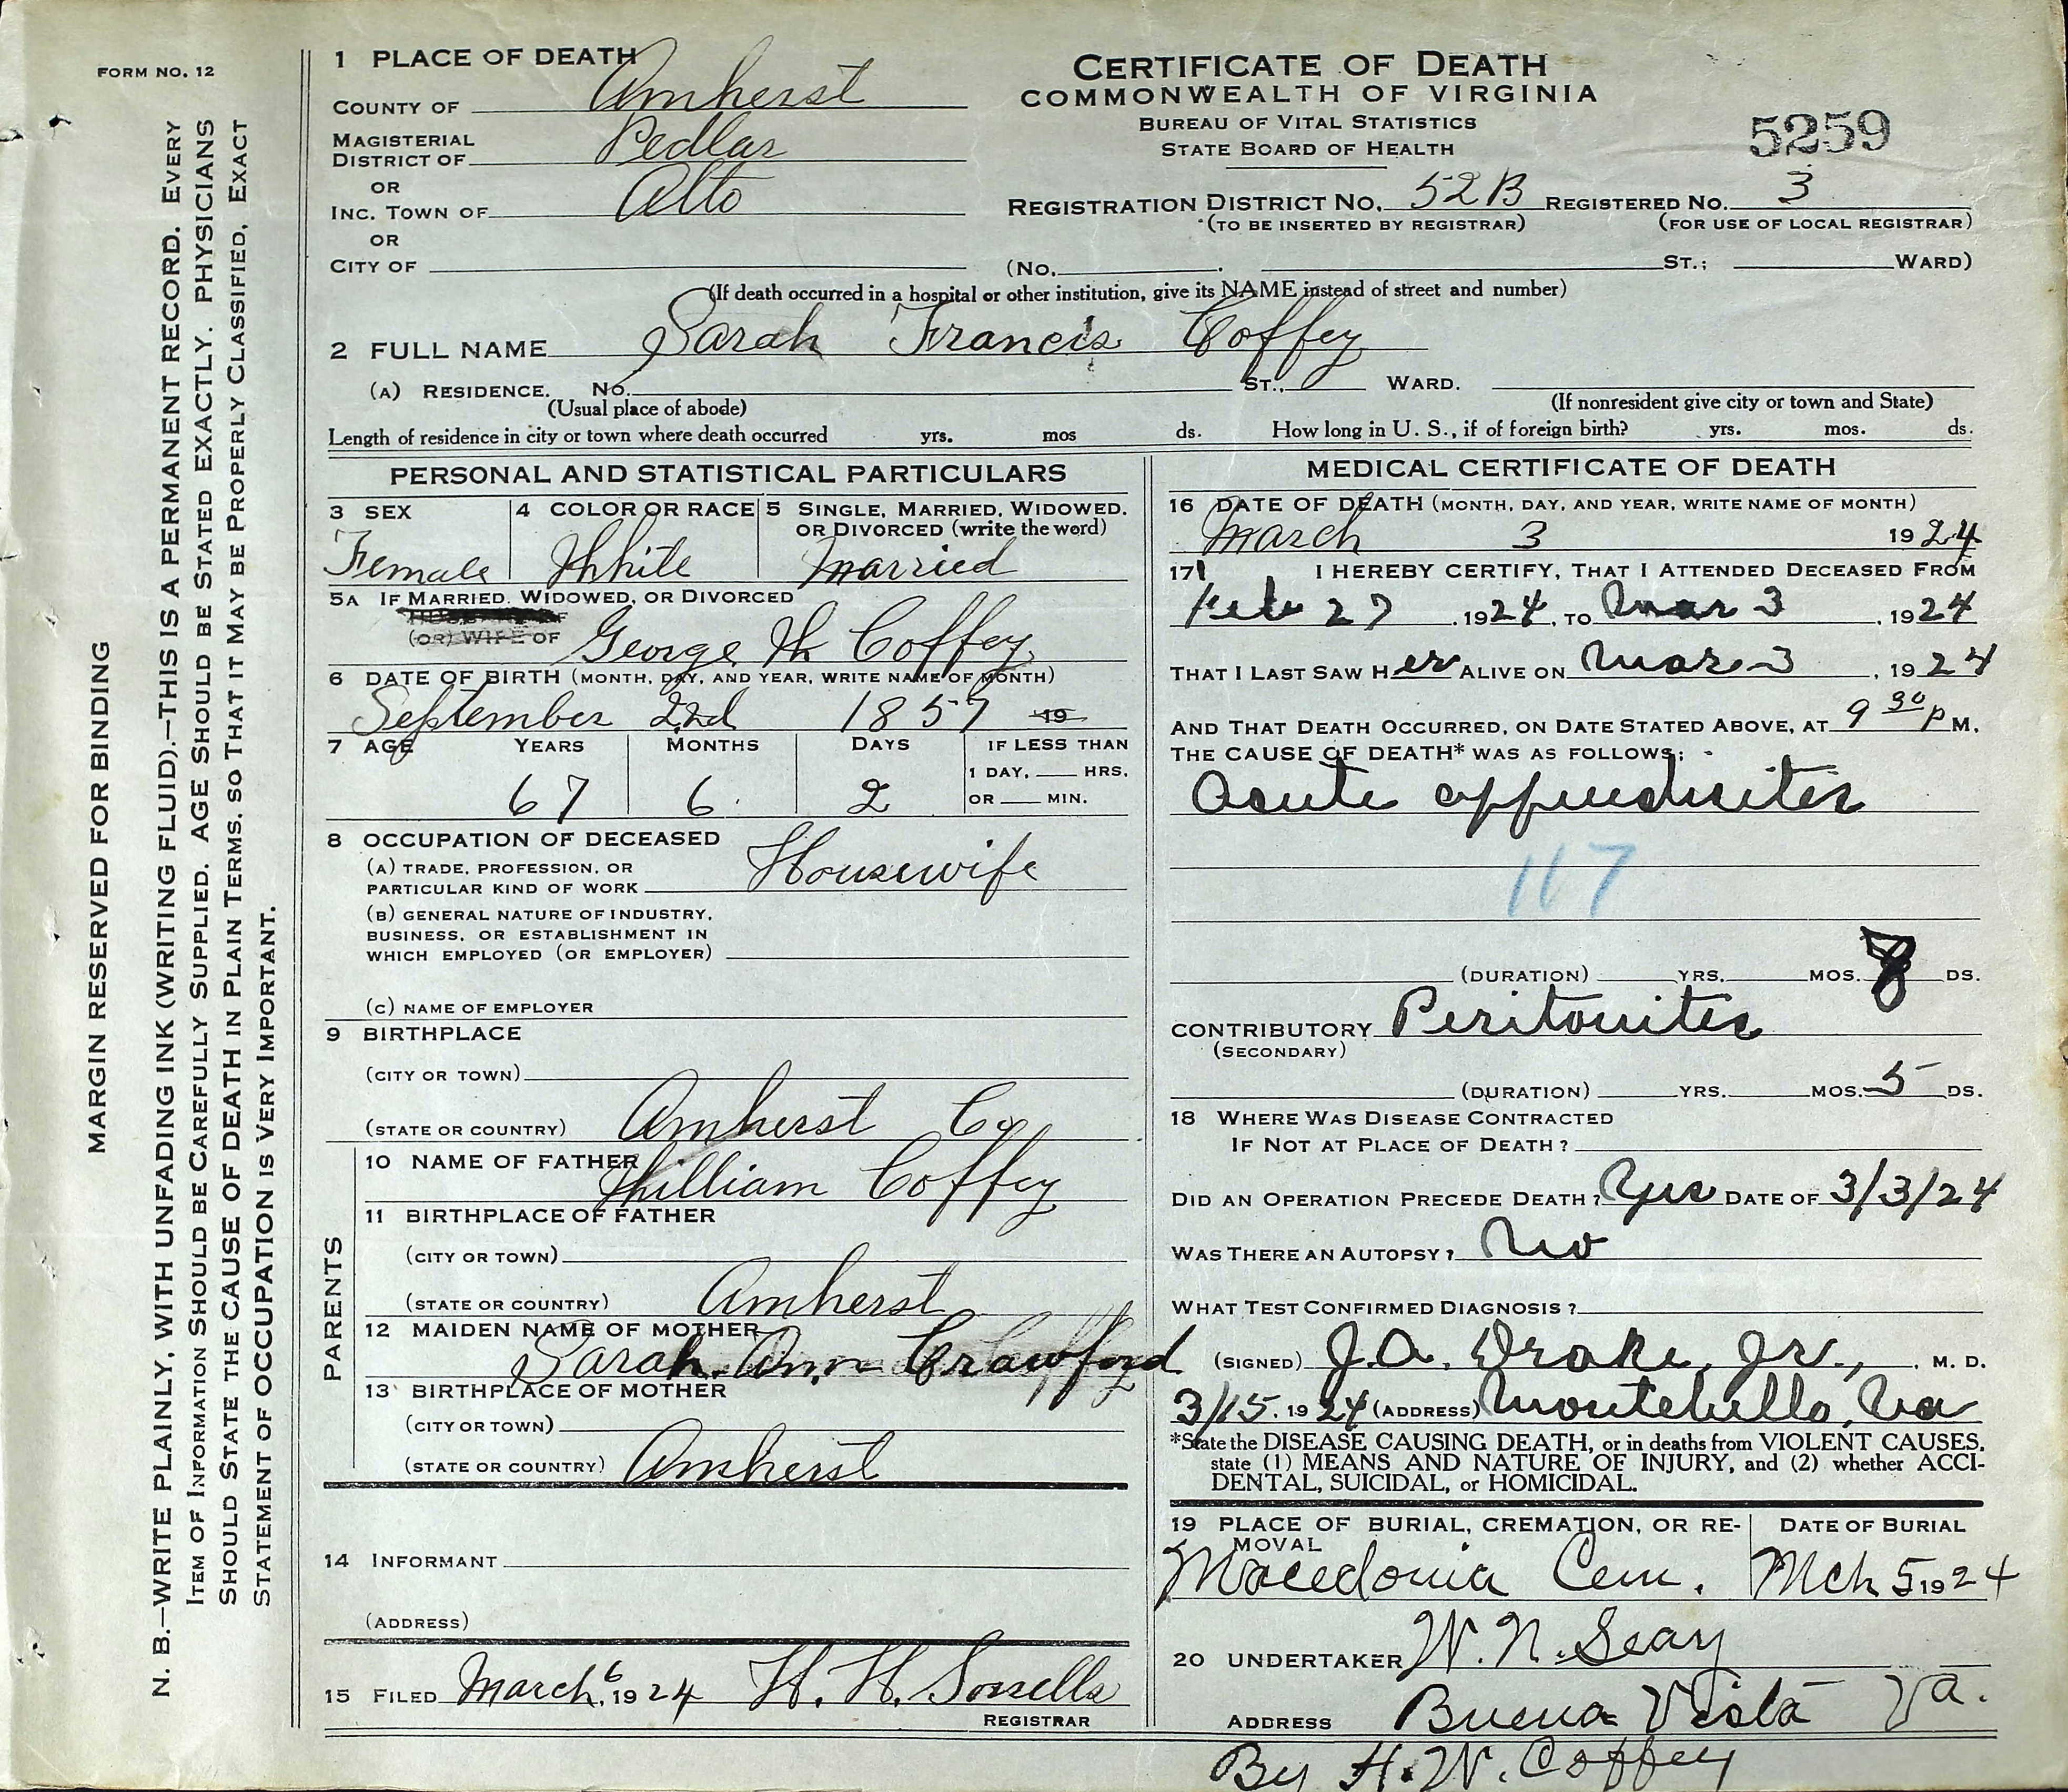 FORM NO. 12
MARGIN RESERVED FOR BINDING
N. B.—WRITE PLAINLY, WITH UNFADING INK (WRITING FLUID).—THIS IS A PERMANENT RECORD. EVERY
ITEM OF INFORMATION SHOULD BE CAREFULLY SUPPLIED. AGE SHOULD BE STATED EXACTLY. PHYSICIANS
SHOULD STATE THE CAUSE OF DEATH IN PLAIN TERMS, SO THAT IT MAY BE PROPERLY CLASSIFIED, EXACT
STATEMENT OF OCCUPATION IS VERY IMPORTANT.
1 PLACE OF DEATH
COUNTY OF Amherst
MAGISTERIAL
DISTRICT OF Pedlar
OR
INC. TOWN OF Alto
OR
CITY OF
CERTIFICATE OF DEATH
COMMONWEALTH OF VIRGINIA
BUREAU OF VITAL STATISTICS
STATE BOARD OF HEALTH
5259
REGISTRATION DISTRICT NO. 52B REGISTERED NO. 3
(TO BE INSERTED BY REGISTRAR) (FOR USE OF LOCAL REGISTRAR)
(NO. ST.; WARD)
(If death occurred in a hospital or other institution, give its NAME instead of street and number)
2 FULL NAME Sarah Francis Coffey
(A) RESIDENCE. NO. ST., WARD.
(Usual place of abode) (If nonresident give city or town and State)
Length of residence in city or town where death occurred yrs. mos ds. How long in U. S., if of foreign birth? yrs. mos. ds.
PERSONAL AND STATISTICAL PARTICULARS
3 SEX 4 COLOR OR RACE 5 SINGLE, MARRIED, WIDOWED.
OR DIVORCED (write the word)
Female White Married
5A IF MARRIED, WIDOWED, OR DIVORCED
(OR) WIFE OF George W Coffey
6 DATE OF BIRTH (MONTH, DAY, AND YEAR, WRITE NAME OF MONTH)
September 22d 1857 19
7 AGE YEARS MONTHS DAYS IF LESS THAN
1 DAY, HRS.
67 6 2 OR MIN.
8 OCCUPATION OF DECEASED
(A) TRADE, PROFESSION, OR
PARTICULAR KIND OF WORK Housewife
(B) GENERAL NATURE OF INDUSTRY,
BUSINESS, OR ESTABLISHMENT IN
WHICH EMPLOYED (OR EMPLOYER)
(C) NAME OF EMPLOYER
9 BIRTHPLACE
(CITY OR TOWN)
(STATE OR COUNTRY) Amherst Co
PARENTS
10 NAME OF FATHER
William Coffey
11 BIRTHPLACE OF FATHER
(CITY OR TOWN)
(STATE OR COUNTRY) Amherst
12 MAIDEN NAME OF MOTHER
Sarah Ann Crawford
13 BIRTHPLACE OF MOTHER
(CITY OR TOWN)
(STATE OR COUNTRY) Amherst
14 INFORMANT
(ADDRESS)
15 FILED March 6 1924
REGISTRAR
MEDICAL CERTIFICATE OF DEATH
16 DATE OF DEATH (MONTH, DAY, AND YEAR, WRITE NAME OF MONTH)
March 3 1924
17 I HEREBY CERTIFY, THAT I ATTENDED DECEASED FROM
Feb 27 , 1924, TO Mar 3 , 1924
THAT I LAST SAW HER ALIVE ON Mar 3 , 1924
AND THAT DEATH OCCURRED, ON DATE STATED ABOVE, AT 9 30 P M.
THE CAUSE OF DEATH* WAS AS FOLLOWS:
Acute appendicitis
117
(DURATION) YRS. MOS. 8 DS.
CONTRIBUTORY Peritonitis
(SECONDARY)
(DURATION) YRS. MOS. 5 DS.
18 WHERE WAS DISEASE CONTRACTED
IF NOT AT PLACE OF DEATH?
DID AN OPERATION PRECEDE DEATH? Yes DATE OF 3/3/24
WAS THERE AN AUTOPSY? No
WHAT TEST CONFIRMED DIAGNOSIS?
(SIGNED) J.A. Drake, Jr., M. D.
3/15, 1924 (ADDRESS) Montebello, Va
*State the DISEASE CAUSING DEATH, or in deaths from VIOLENT CAUSES,
state (1) MEANS AND NATURE OF INJURY, and (2) whether ACCI-
DENTAL, SUICIDAL, or HOMICIDAL.
19 PLACE OF BURIAL, CREMATION, OR RE- DATE OF BURIAL
MOVAL
Macedonia Cem. Mch 5 1924
20 UNDERTAKER W. N. Seay
ADDRESS Buena Vista Va.
By H. W. Coffey